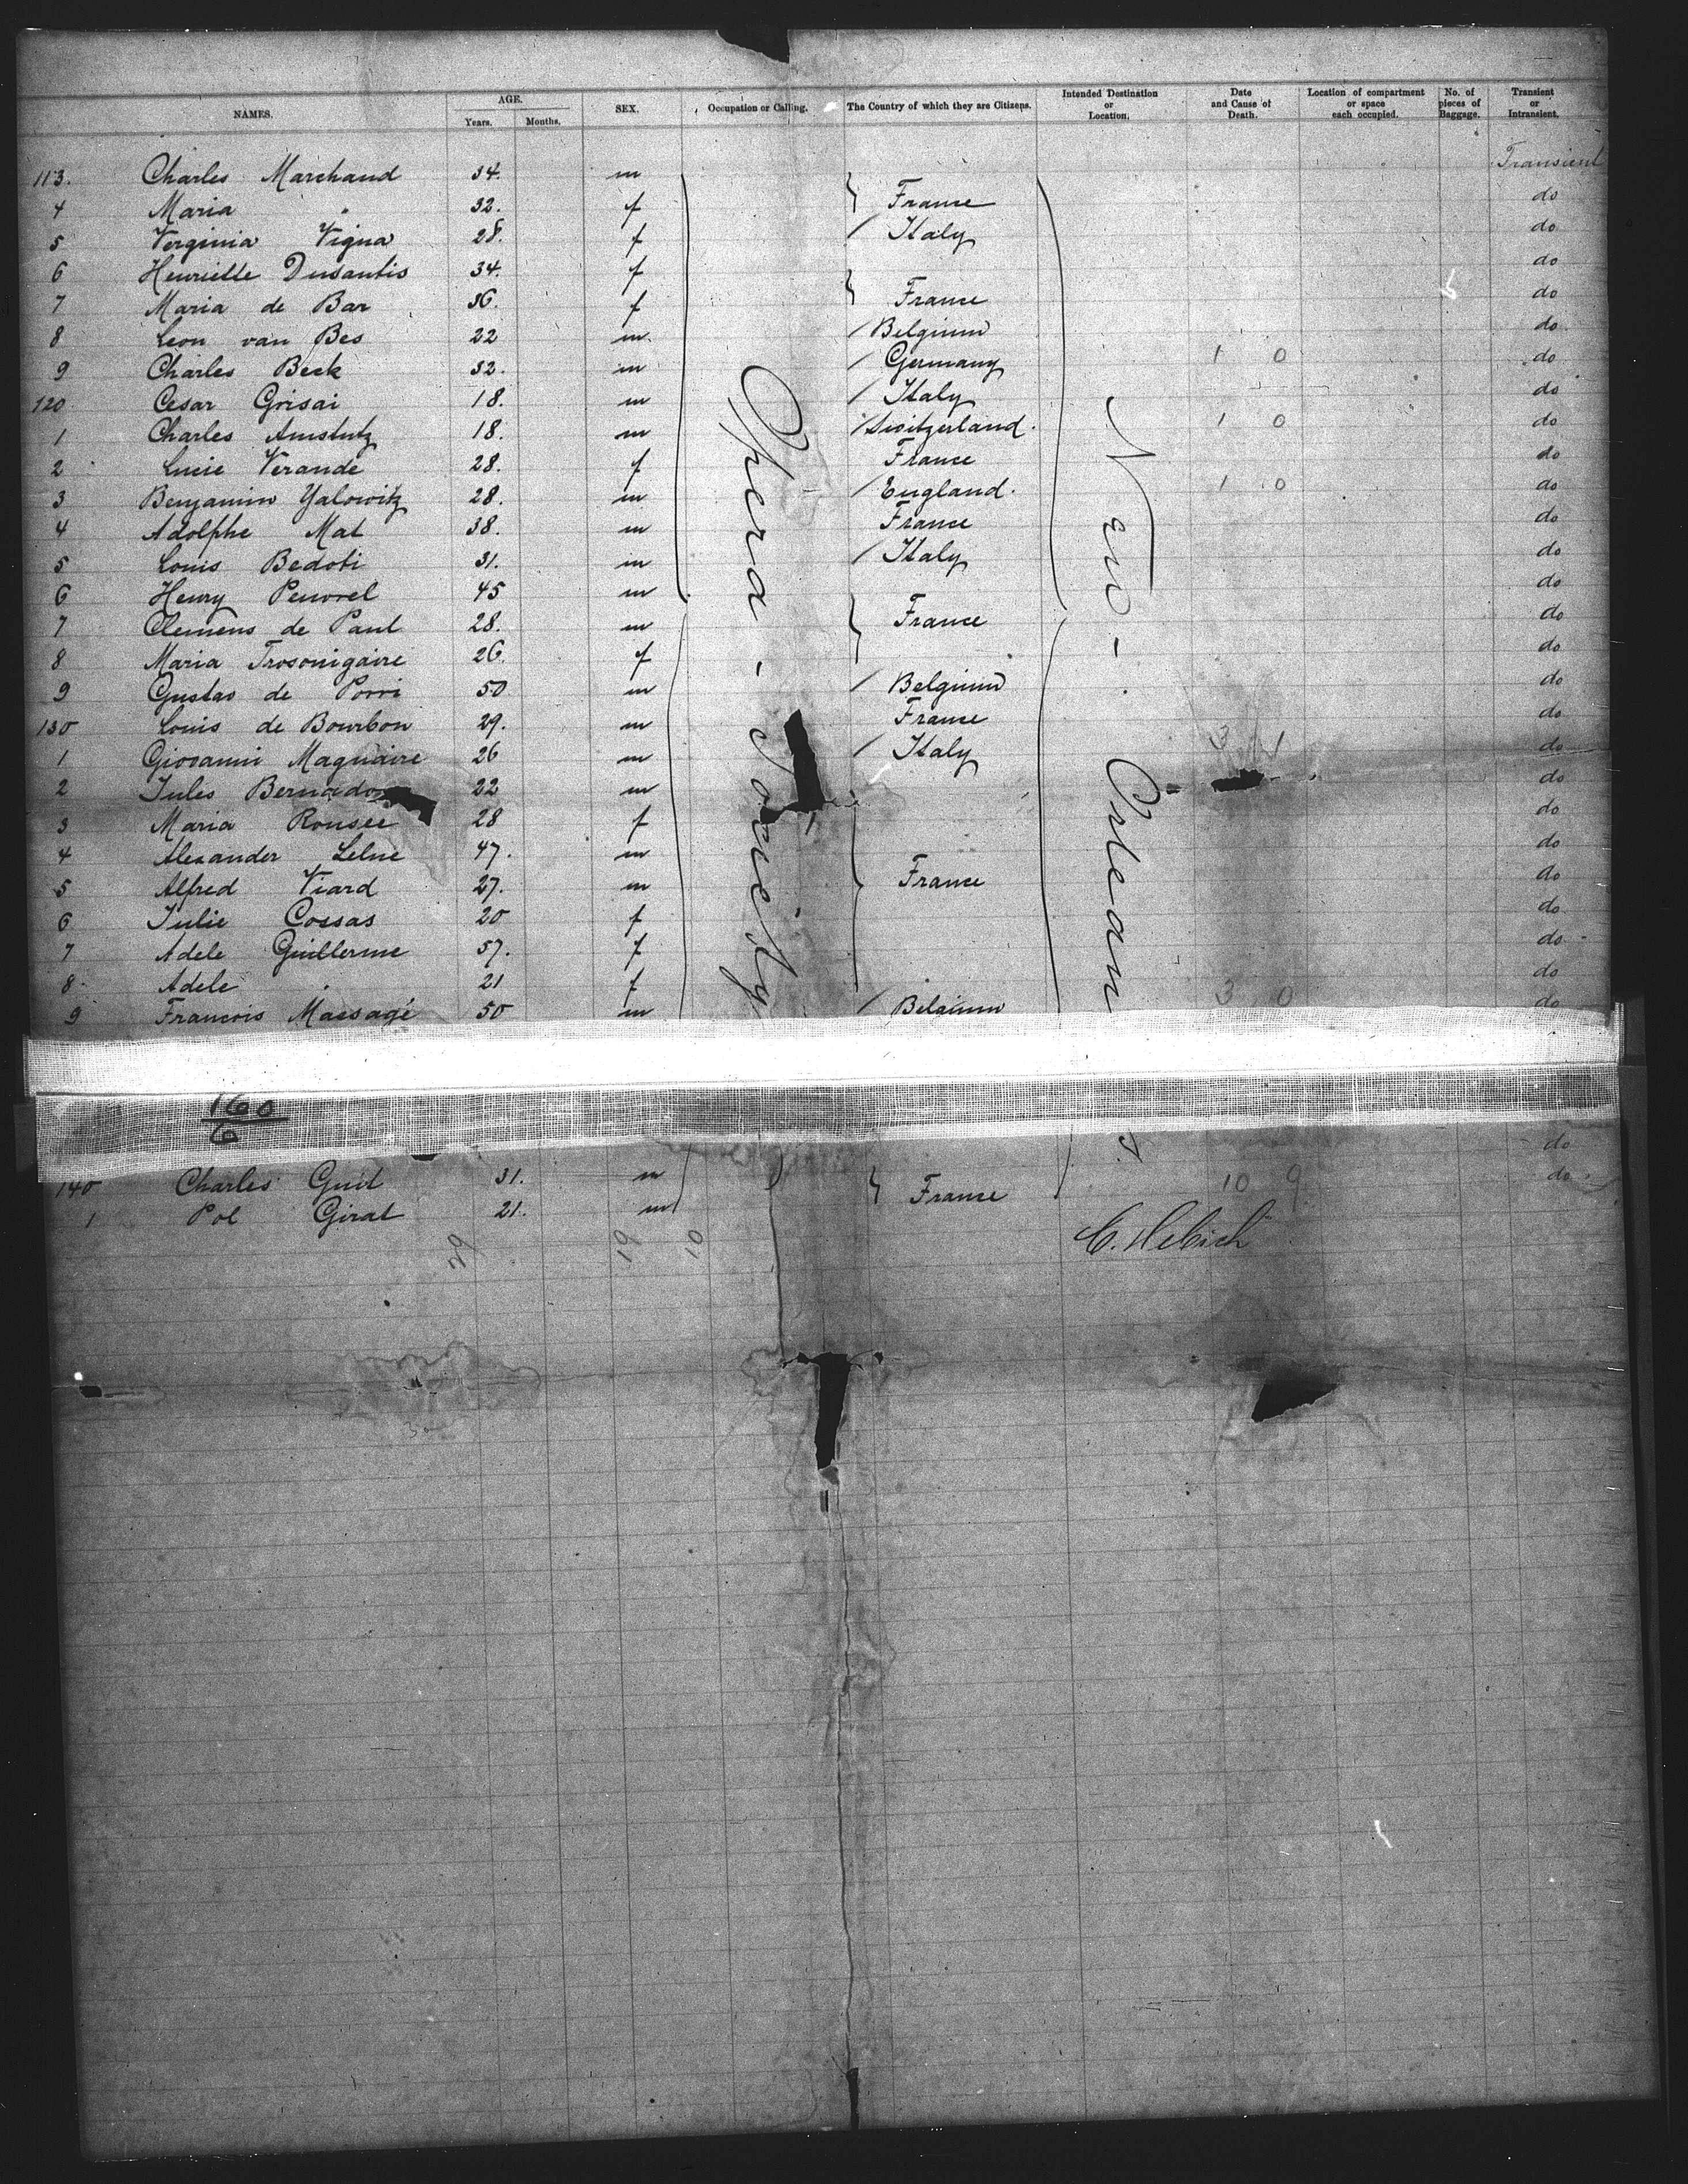 NAMES. AGE. Years. Months. SEX. Occupation or Calling. The Country of which they are Citizens. Intended Destination or Location. Date and Cause of Death. Location of compartment or space each occupied. No. of pieces of Baggage. Transient or Intransient.
113. Charles Marchand 34. m Transient
4 Maria " 32. f } France do
5 Verginia Vigna 28. f / Italy do
6 Henriette Dusantis 34. f do
7 Maria de Bar 36. f } France do
8 Leon van Bes 22 m. / Belgium do
9 Charles Beck 32. m / Germany 1 0 do
120. Cesar Grisai 18. m / Italy do
1 Charles Amstutz 18. m / Switzerland. 1 0 do
2 Lucie Verande 28. f France do
3 Benjamin Yalowitz 28. m / England. 1 0 do
4 Adolphe Mat 38. m France do
5 Louis Bedoti 31. m / Italy do
6 Henry 45 m do
7 Clemens de Paul 28. m } France do
8 Maria 26. f do
9 Gustav de Porri 50 m / Belgium do
130 Louis de Bourbon 29. m France do
1 Giovanni Magnaire 26 m / Italy 3 1 do
2 Jules 22 m do
3 Maria Rousee 28 f do
4 Alexander 47. m do
5 Alfred Viard 27. m } France do
6 Julie Cossas 20 f do
7 Adele Guillerme 57. f do
8. Adele " 21 f do
9 Francois Massagé 50 m / Belgium 3 0 do
Opera-Society
New-Orleans.
160
6
do
140 Charles Guit 31. m 10 9 do
1 Pol Girat 21. m } France
29 19 10
C. Hebich